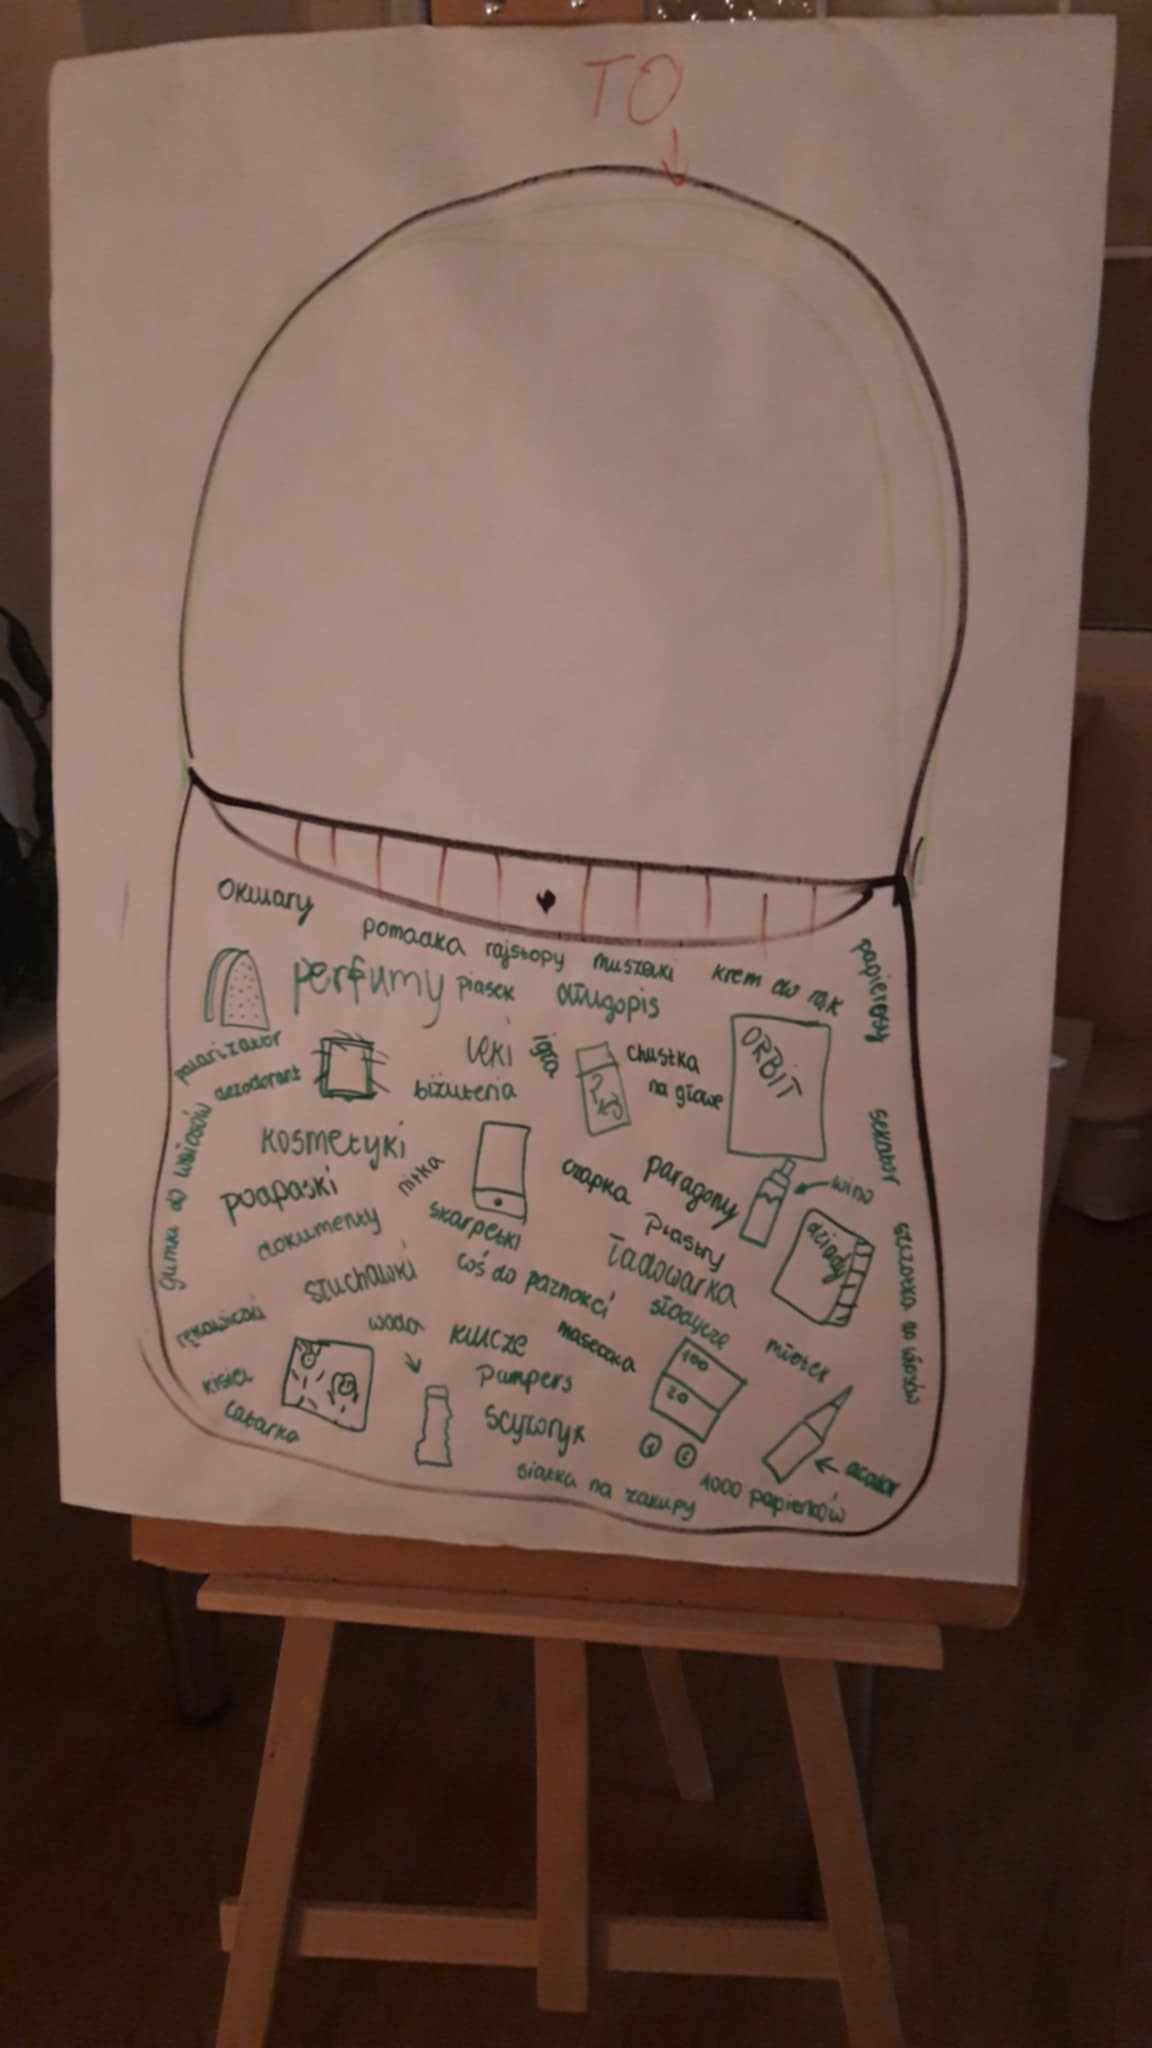 TO
okulary
pomadka
rajstopy
muszelki
krem do rąk
papierosy
perfumy
piasek
długopis
polarizator
dezodorant
leki
igła
chustka
na głowę
ORBIT
biżuteria
gumki do włosów
kosmetyki
nitka
czapka
paragony
wino
sekator
podpaski
skarpetki
Plastry
dziady
szczotka do włosów
dokumenty
słuchawki
coś do paznokci
ładowarka
słodycze
rękawiczki
woda
klucze
maseczka
młotek
kisiel
Pampers
100
20
latarka
scyzoryk
siatka na zakupy
1000 papierków